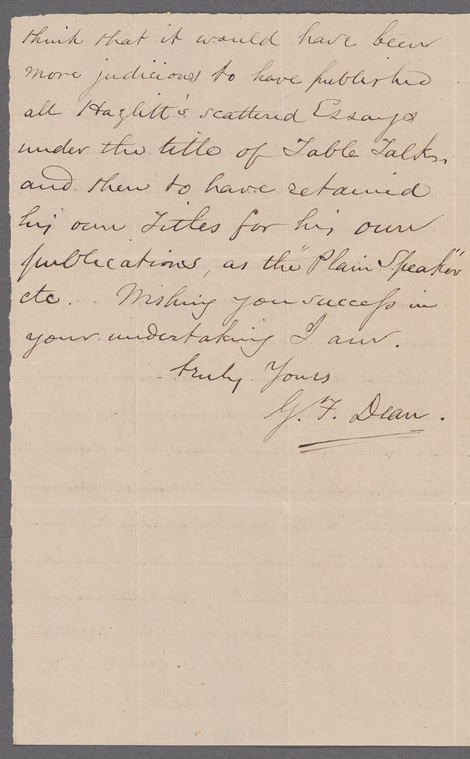 think that it would have been
more judicious to have published
all Hazlitt's scattered Essays
under the title of Table Talk,
and then to have retained
his own Titles for his own
publications, as the "Plain Speaker"
etc. Wishing you success in
your undertaking I am.
truly Yours
G. F. Dean.